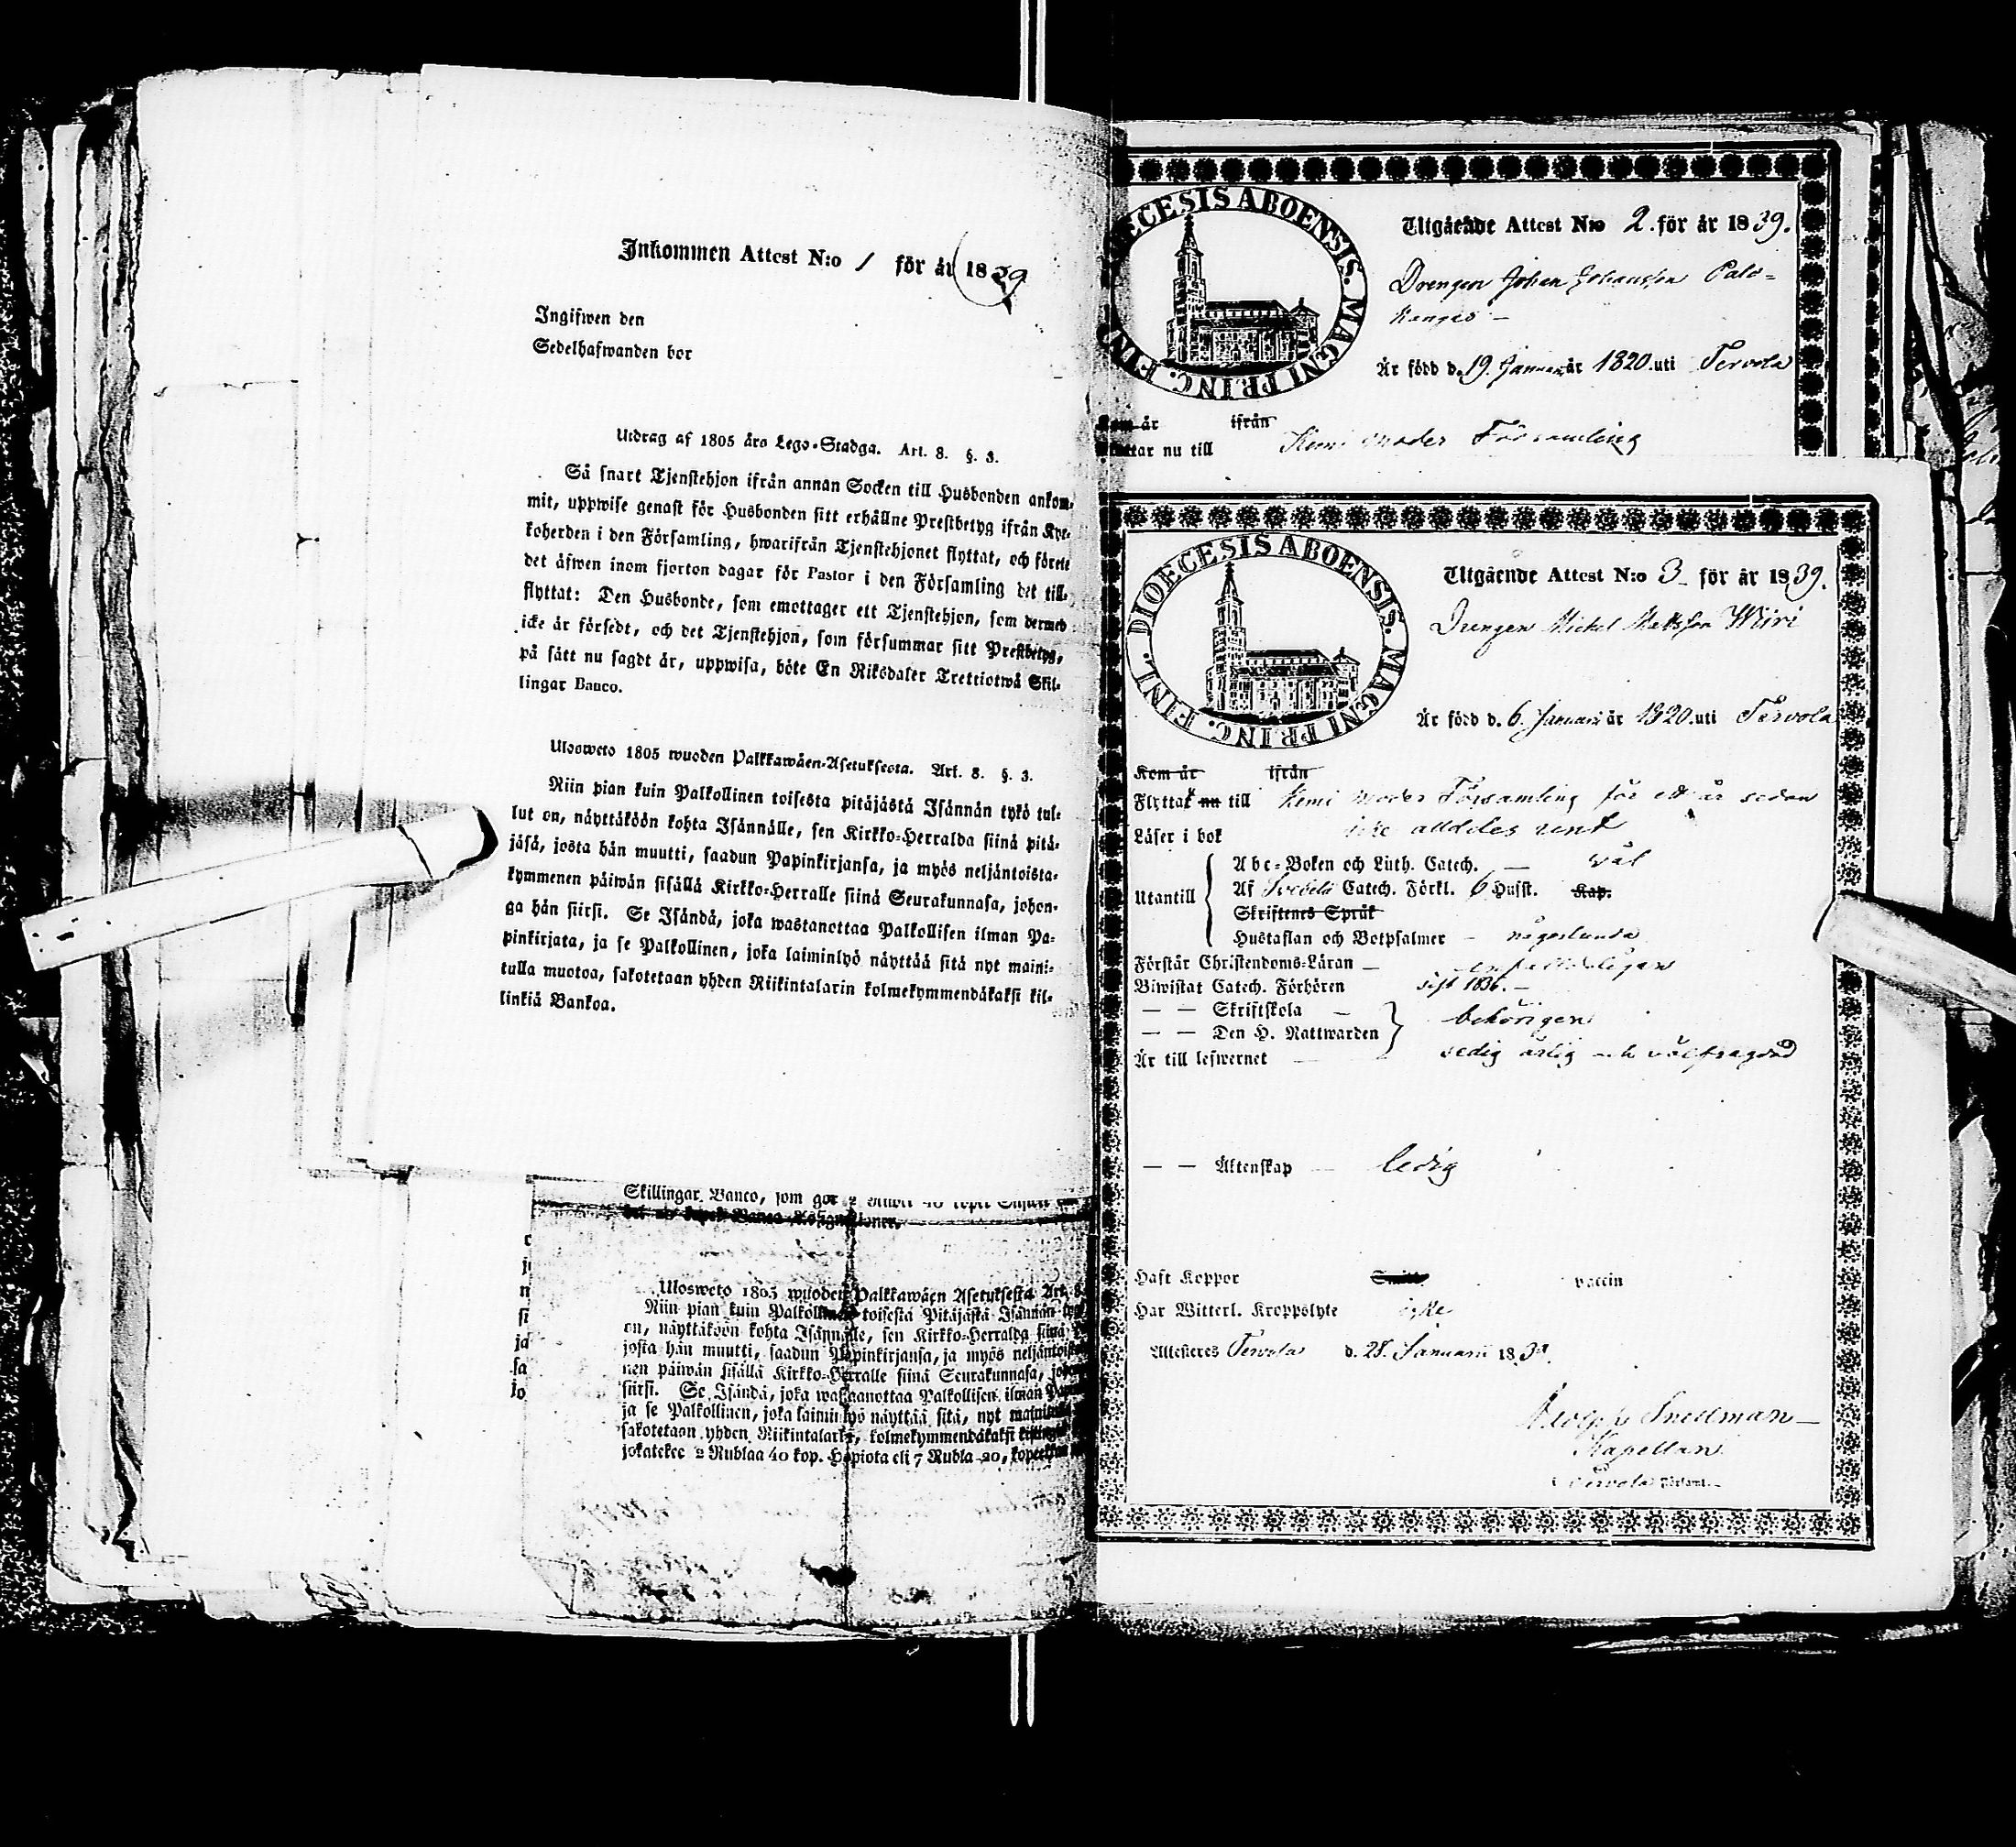 Inkommen Attest N:o 1 för år 1839
Ingifwen den
Sedelhafwanden bor
Utdrag af 1805 års Lego-Stadga. Art. 8. §. 3.
Så snart Tjenstehjon ifrån annan Socken till Husbonden ankom-
mit, uppwise genast för Husbonden sitt erhållne Prestbetyg ifrån Kyr-
koherden i den Församling, hwarifrån Tjenstehjonet flyttat, och förete
det äfwen inom fjorton dagar för Pastor i den Församling det till-
flyttat: Den Husbonde, som emottager ett Tjenstehjon, som dermed
icke är försedt, och det Tjenstehjon, som försummar sitt Prestbetyg,
på sätt nu sagdt är, uppwisa, böte En Riksdaler Trettiotwå Skil-
lingar Banco.
Ulosweto 1805 wuoden Palkkawäen-Asetuksesta. Art. 8. §. 3.
Niin pian kuin Palkollinen toisesta pitäjästä Isännän tykö tul-
lut on, näyttäköön kohta Isännälle, sen Kirkko-Herralda siinä pitä-
jäsä, josta hän muutti, saadun Papinkirjansa, ja myös neljäntoista-
kymmenen päiwän sisällä Kirkko-Herralle siinä Seurakunnasa, johon-
ga hän siirsi. Se Isändä, joka wastanottaa Palkollisen ilman Pa-
pinkirjata, ja se Palkollinen, joka laiminlyö näyttää sitä nyt maini-
tulla muotoa, sakotetaan yhden Riikintalarin kolmekymmendäkaksi kil-
linkiä Bankoa.
Skillingar Banco, som gör 2
Ulosweto 1805 wuoden Palkkawäen Asetuksesta Art. 8.
Niin pian kuin Palkollinen toisesta Pitäjästä Isännän
on, näyttäköön kohta Isännälle, sen Kirkko-Herralda siinä
josta hän muutti, saadun Papinkirjansa, ja myös neljäntois
nen päiwän sisällä Kirkko-Herralle siinä Seurakunnasa, joh
siirsi. Se Isändä, joka wastaanottaa Palkollisen ilman
ja se Palkollinen, joka laiminlyö näyttää sitä, nyt
sakotetaan yhden Riikintalarin, kolmekymmendäkaksi
jokatekee 2 Rublaa 40 kop. Hopiota eli 7 Rubla 20, kopeekkaa
DIOECESIS ABOENSIS. MAGNI PRINC. FINL.
Utgående Attest N:o 2. för år 1839.
Drengen Johan Johansson Palo-
kangas –
Är född d. 19. Januari år 1820. uti Tervola
Kom år ifrån
Flyttar nu till Kemi moder Församling
DIOECESIS ABOENSIS. MAGNI PRINC. FINL.
Utgående Attest N:o 3 för år 1839.
Drengen Michel Mattsson Wiiri
Är född d. 6. Januari år 1820. uti Tervola
Kom år ifrån
Flyttat nu till Kemi moder Församling för ett år sedan
Läser i bok icke alldeles rent
Utantill
Abc-Boken och Luth. Catech. — väl
Af Svebelii Catech. Förkl. 6 Hufst. Kap.
Skriftenes Språk
Hustaflan och Botpsalmer – någorlunda
Förstår Christendoms-Läran — enfaldeligen
Biwistat Catech. Förhören sist 1836. –
— — Skriftskola –
— — Den H. Nattwarden behörigen
Är till lefwernet — sedig ärlig och välfrägdad
— — Äktenskap — ledig
Haft Koppor vaccin
Har Witterl. Kroppslyte icke
Attesteres Tervola d. 28. Januarii 1839.
Adolph Snellman
Kapellan
i Tervola Församl.